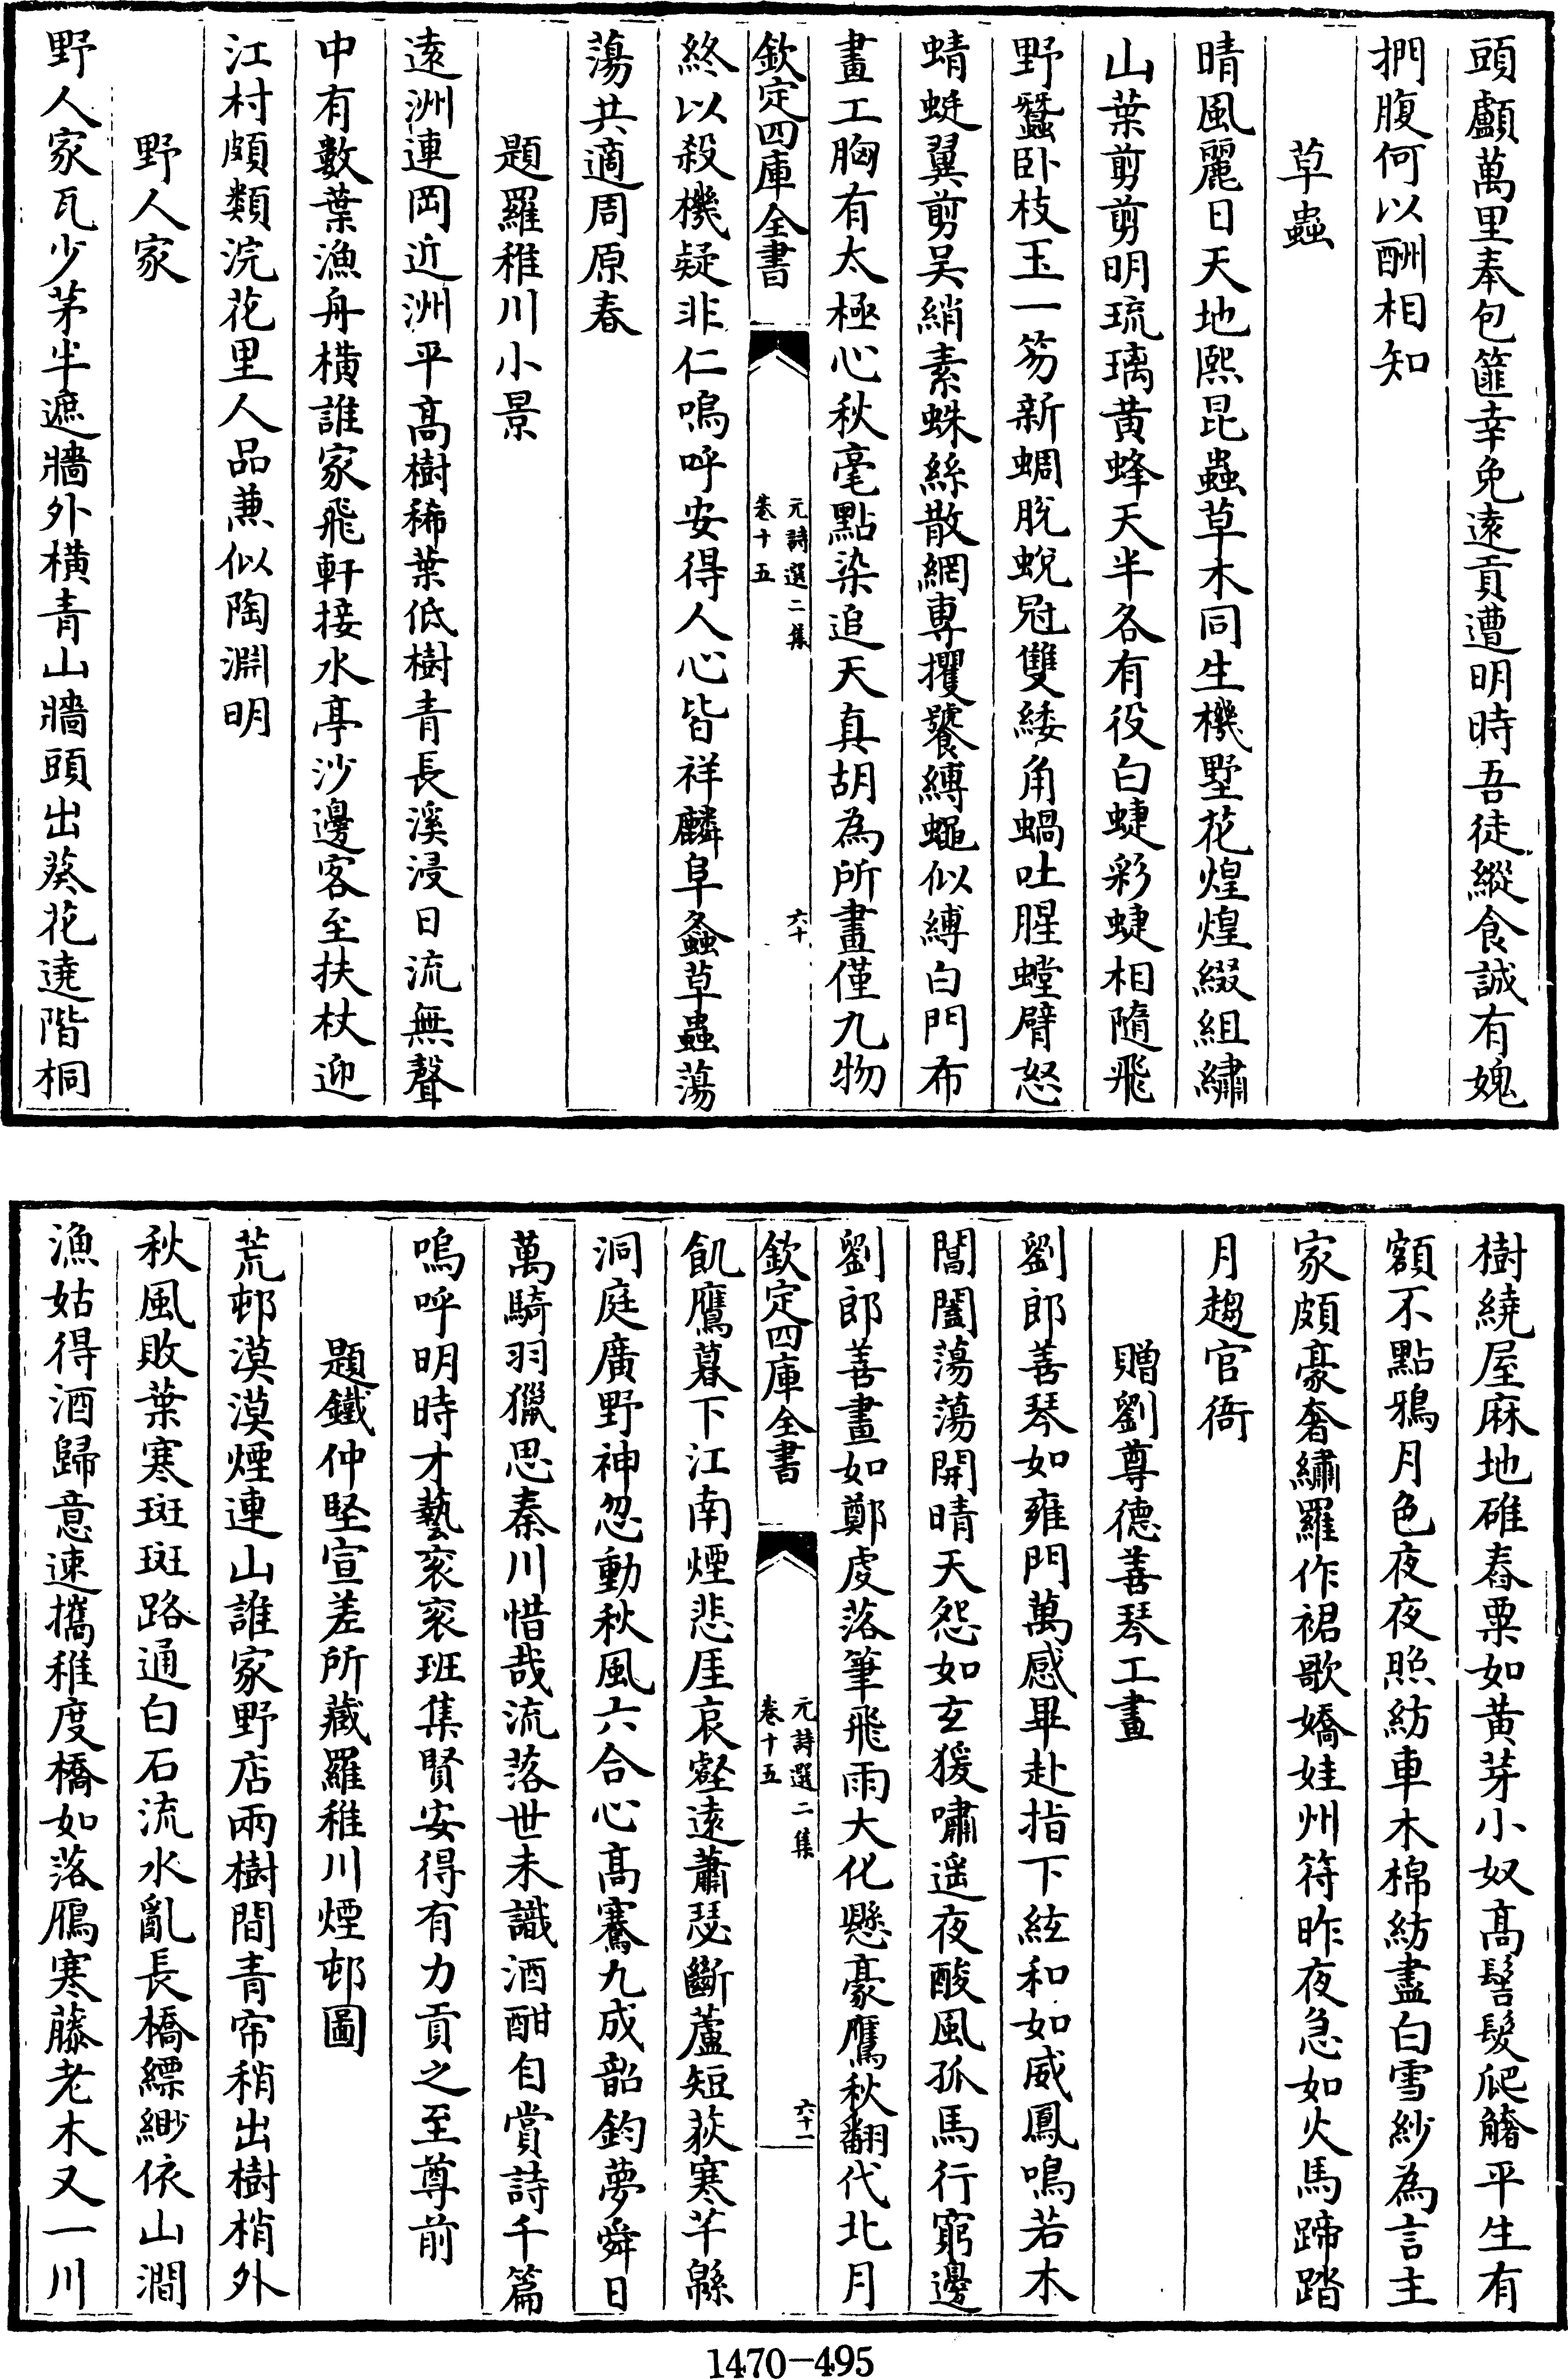 頭顱萬里奉包篚幸免遠貢遭明時吾徒縱食誠有媿
捫腹何以酬相知
草蟲
晴風麗日天地熙昆蟲草木同生機墅花煌煌綴組繡
山葉剪剪明琉璃黃蜂天半各有役白蜨彩蜨相隨飛
野蠶卧枝玉一笏新蜩脫蛻冠雙緌角蝸吐腥螳臂怒
蜻蜓翼剪吳綃素蛛絲散網專攫饕縛蠅似縛白門布
畫工胸有太極心秋毫點染追天真胡為所畫僅九物
欽定四庫全書
元詩選二集
卷十五
六十
終以殺機疑非仁嗚呼安得人心皆祥麟阜螽草蟲蕩
蕩共適周原春
題羅稚川小景
遠洲連岡近洲平高樹稀葉低樹青長溪浸日流無聲
中有數葉漁舟橫誰家飛軒接水亭沙邊客至扶杖迎
江村頗類浣花里人品兼似陶淵明
野人家
野人家瓦少茅半遮牆外橫青山牆頭出葵花遶階桐
樹繞屋麻地碓舂粟如黃芽小奴高髻髮爬䰀平生有
額不點鴉月色夜夜照紡車木棉紡盡白雪紗為言主
家頗豪奢繡羅作裙歌嬌娃州符昨夜急如火馬蹄踏
月趨官衙
贈劉尊德善琴工畫
劉郎善琴如雍門萬感畢赴指下絃和如威鳳鳴若木
閶闔蕩蕩開晴天怨如玄猨嘯遥夜酸風孤馬行窮邊
劉郎善畫如鄭虔落筆飛雨大化懸豪鷹秋翻代北月
欽定四庫全書
元詩選二集
卷十五
六十一
飢鷹暮下江南煙悲厓哀壑遠蕭瑟斷蘆短荻寒芊緜
洞庭廣野神忽動秋風六合心高騫九成韶鈞夢舜日
萬騎羽獵思秦川惜哉流落世未識酒酣自賞詩千篇
嗚呼明時才藝衮衮班集賢安得有力貢之至尊前
題鐵仲堅宣差所藏羅稚川煙邨圖
荒邨漠漠煙連山誰家野店兩樹間青帘稍出樹梢外
秋風敗葉寒斑斑路通白石流水亂長橋縹緲依山澗
漁姑得酒歸意速攜稚度橋如落鴈寒藤老木又一川
1470-495